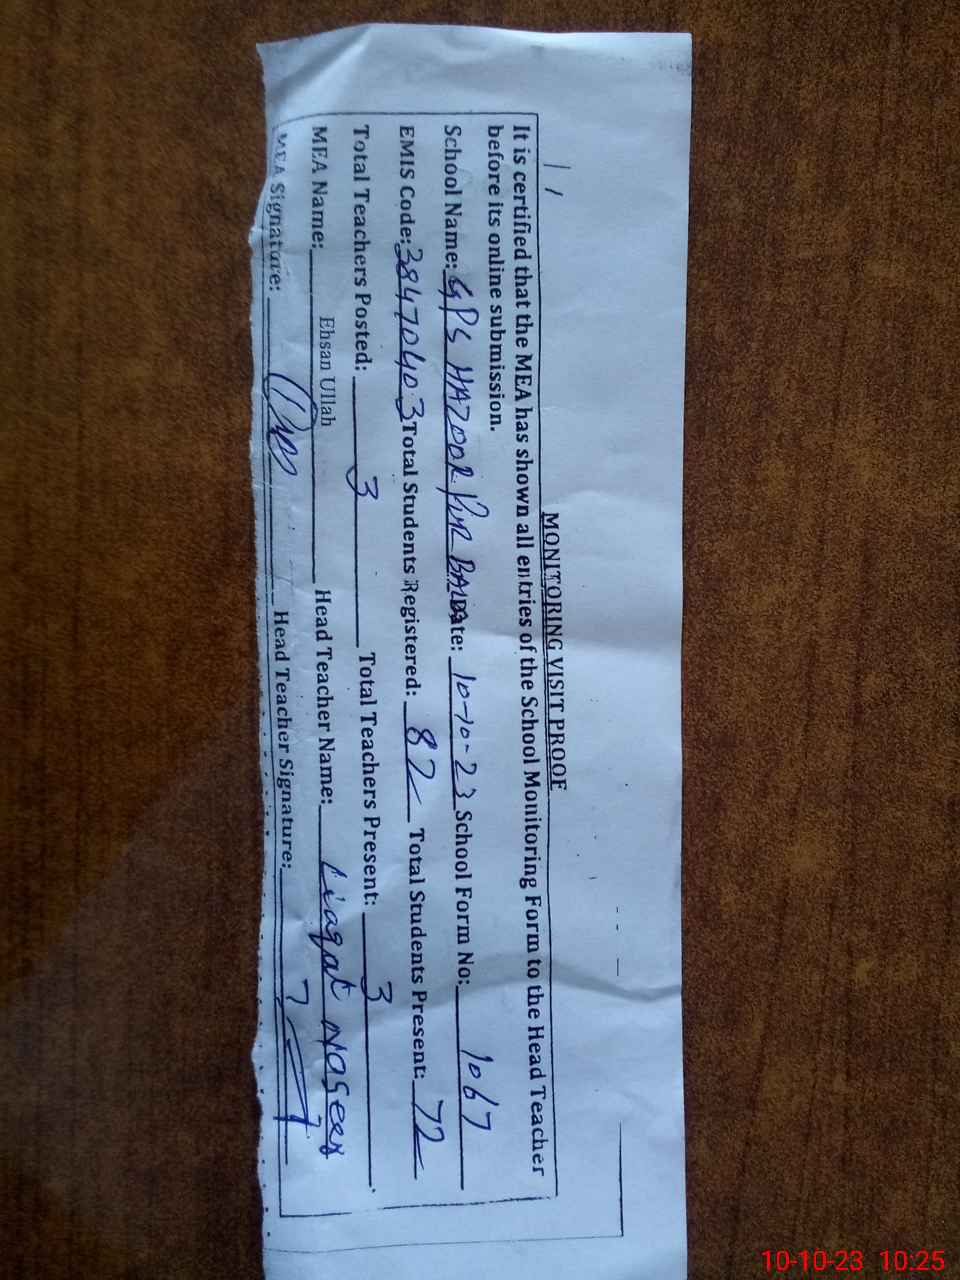 MONITORING VISIT PROOF
It is certified that the MEA has shown all entries of the School Monitoring Form to the Head Teacher
before its online submission.
School Name: GPS HAZOOR PUR Date: 10-10-23 School Form No: 1067
EMIS Code: 38470403 Total Students Registered: 82 Total Students Present: 72
Total Teachers Posted: 3 Total Teachers Present: 3
MEA Name: Ehsan Ullah Head Teacher Name: Liaqat Naseer
MEA Signature: Head Teacher Signature:
10-10-23 10:25